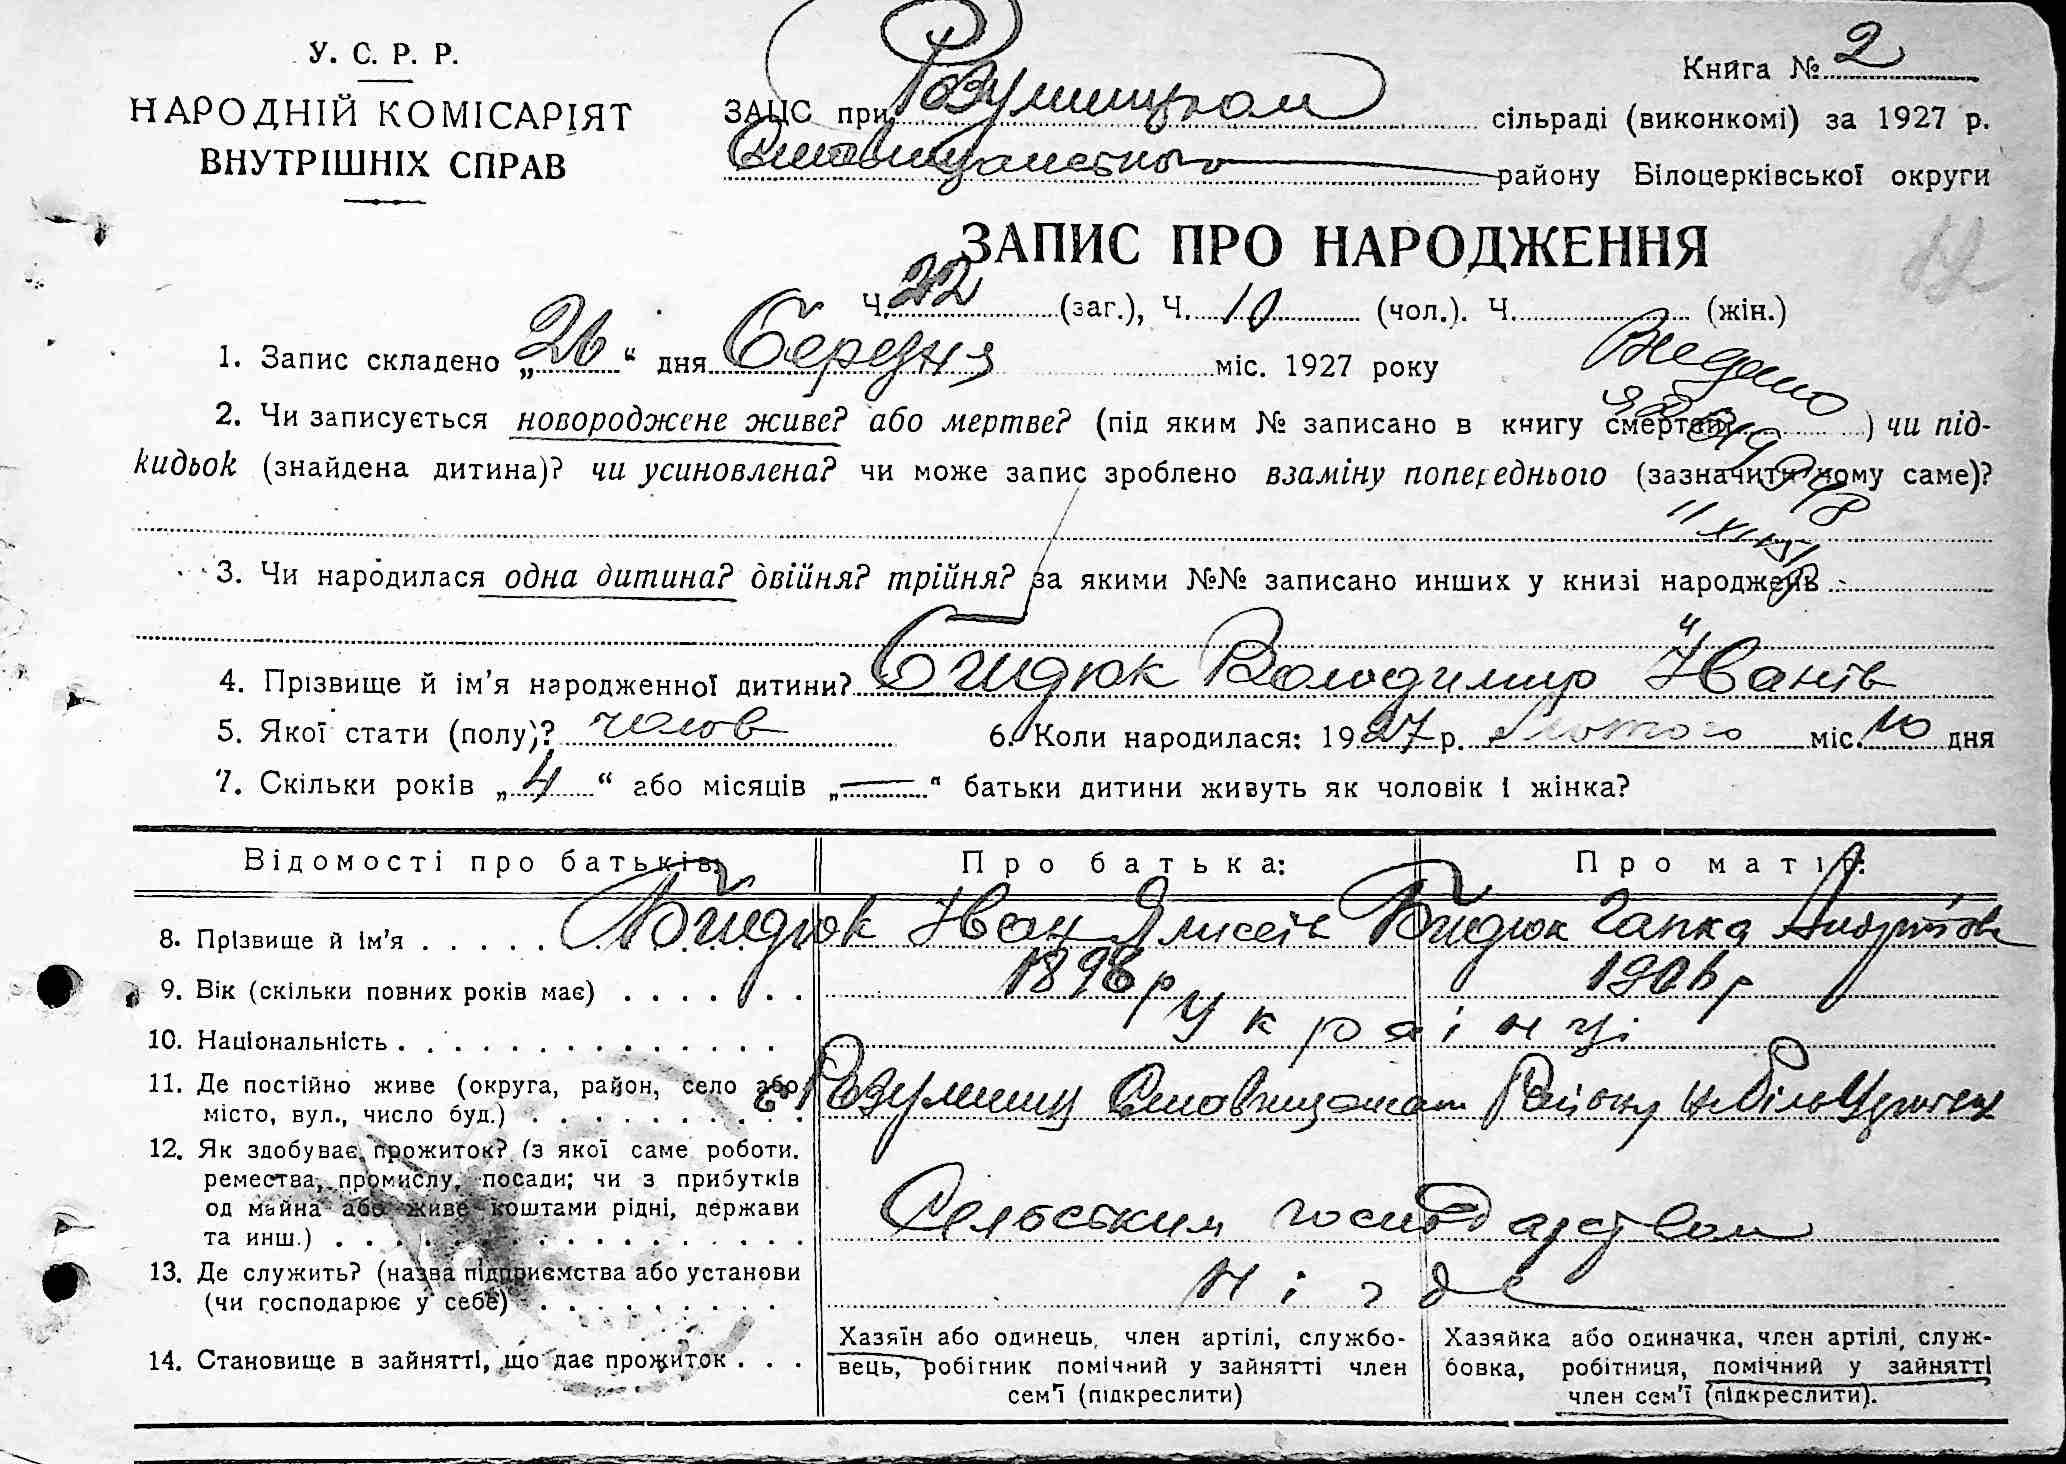 У. С. Р. Р.
НАРОДНІЙ КОМІСАРІЯТ
ВНУТРІШНІХ СПРАВ
Книга № 2
ЗАЦС при Розумницком сільраді (виконкомі) за 1927 р.
Ставищанского району Білоцерківської округи
ЗАПИС ПРО НАРОДЖЕННЯ
Ч. 22 (заг.), Ч. 10 (чол.). Ч. (жін.)
1. Запис складено „26“ дня Березня міс. 1927 року
Видано
2. Чи записується новороджене живе? або мертве? (під яким № записано в книгу смертей ) чи під-
кидьок (знайдена дитина)? чи усиновлена? чи може запис зроблено взаміну попереднього (зазначити чому саме)?
3. Чи народилася одна дитина? двійня? трійня? за якими №№ записано инших у книзі народжень
4. Прізвище й ім’я народженної дитини? Бийдюк Володимир Іванів
5. Якої стати (полу)? чолов 6. Коли народилася: 1927 р. Лютого міс. 10 дня
7. Скільки років „4“ або місяців „—“ батьки дитини живуть як чоловік і жінка?
Відомості про батьків: Про батька: Про матір:
8. Прізвище й ім’я . . . . . Байдюк Іван Ялисеїв Байдюк Гапка
9. Вік (скільки повних років має) . . . . . . . 1898 р 1906 р
10. Національність . . . . . . . . . . . . . . Українці
11. Де постійно живе (округа, район, село або с Розумниці Ставищанськ Району
місто, вул., число буд.) . . . . . . . . . .
12. Як здобуває прожиток? (з якої саме роботи,
ремества, промислу, посади; чи з прибутків
од майна або живе коштами рідні, держави Сельським господарством
та инш.) . . . . . . . . . . . . . . . . .
13. Де служить? (назва підприємства або установи Нігде
(чи господарює у себе) . . . . . . . . . .
14. Становище в зайнятті, що дає прожиток . . .
Хазяїн або одинець, член артілі, службо-
вець, робітник помічний у зайнятті член
сем’ї (підкреслити)
Хазяйка або одиначка, член артілі, служ-
бовка, робітниця, помічний у зайнятті
член сем’ї (підкреслити).